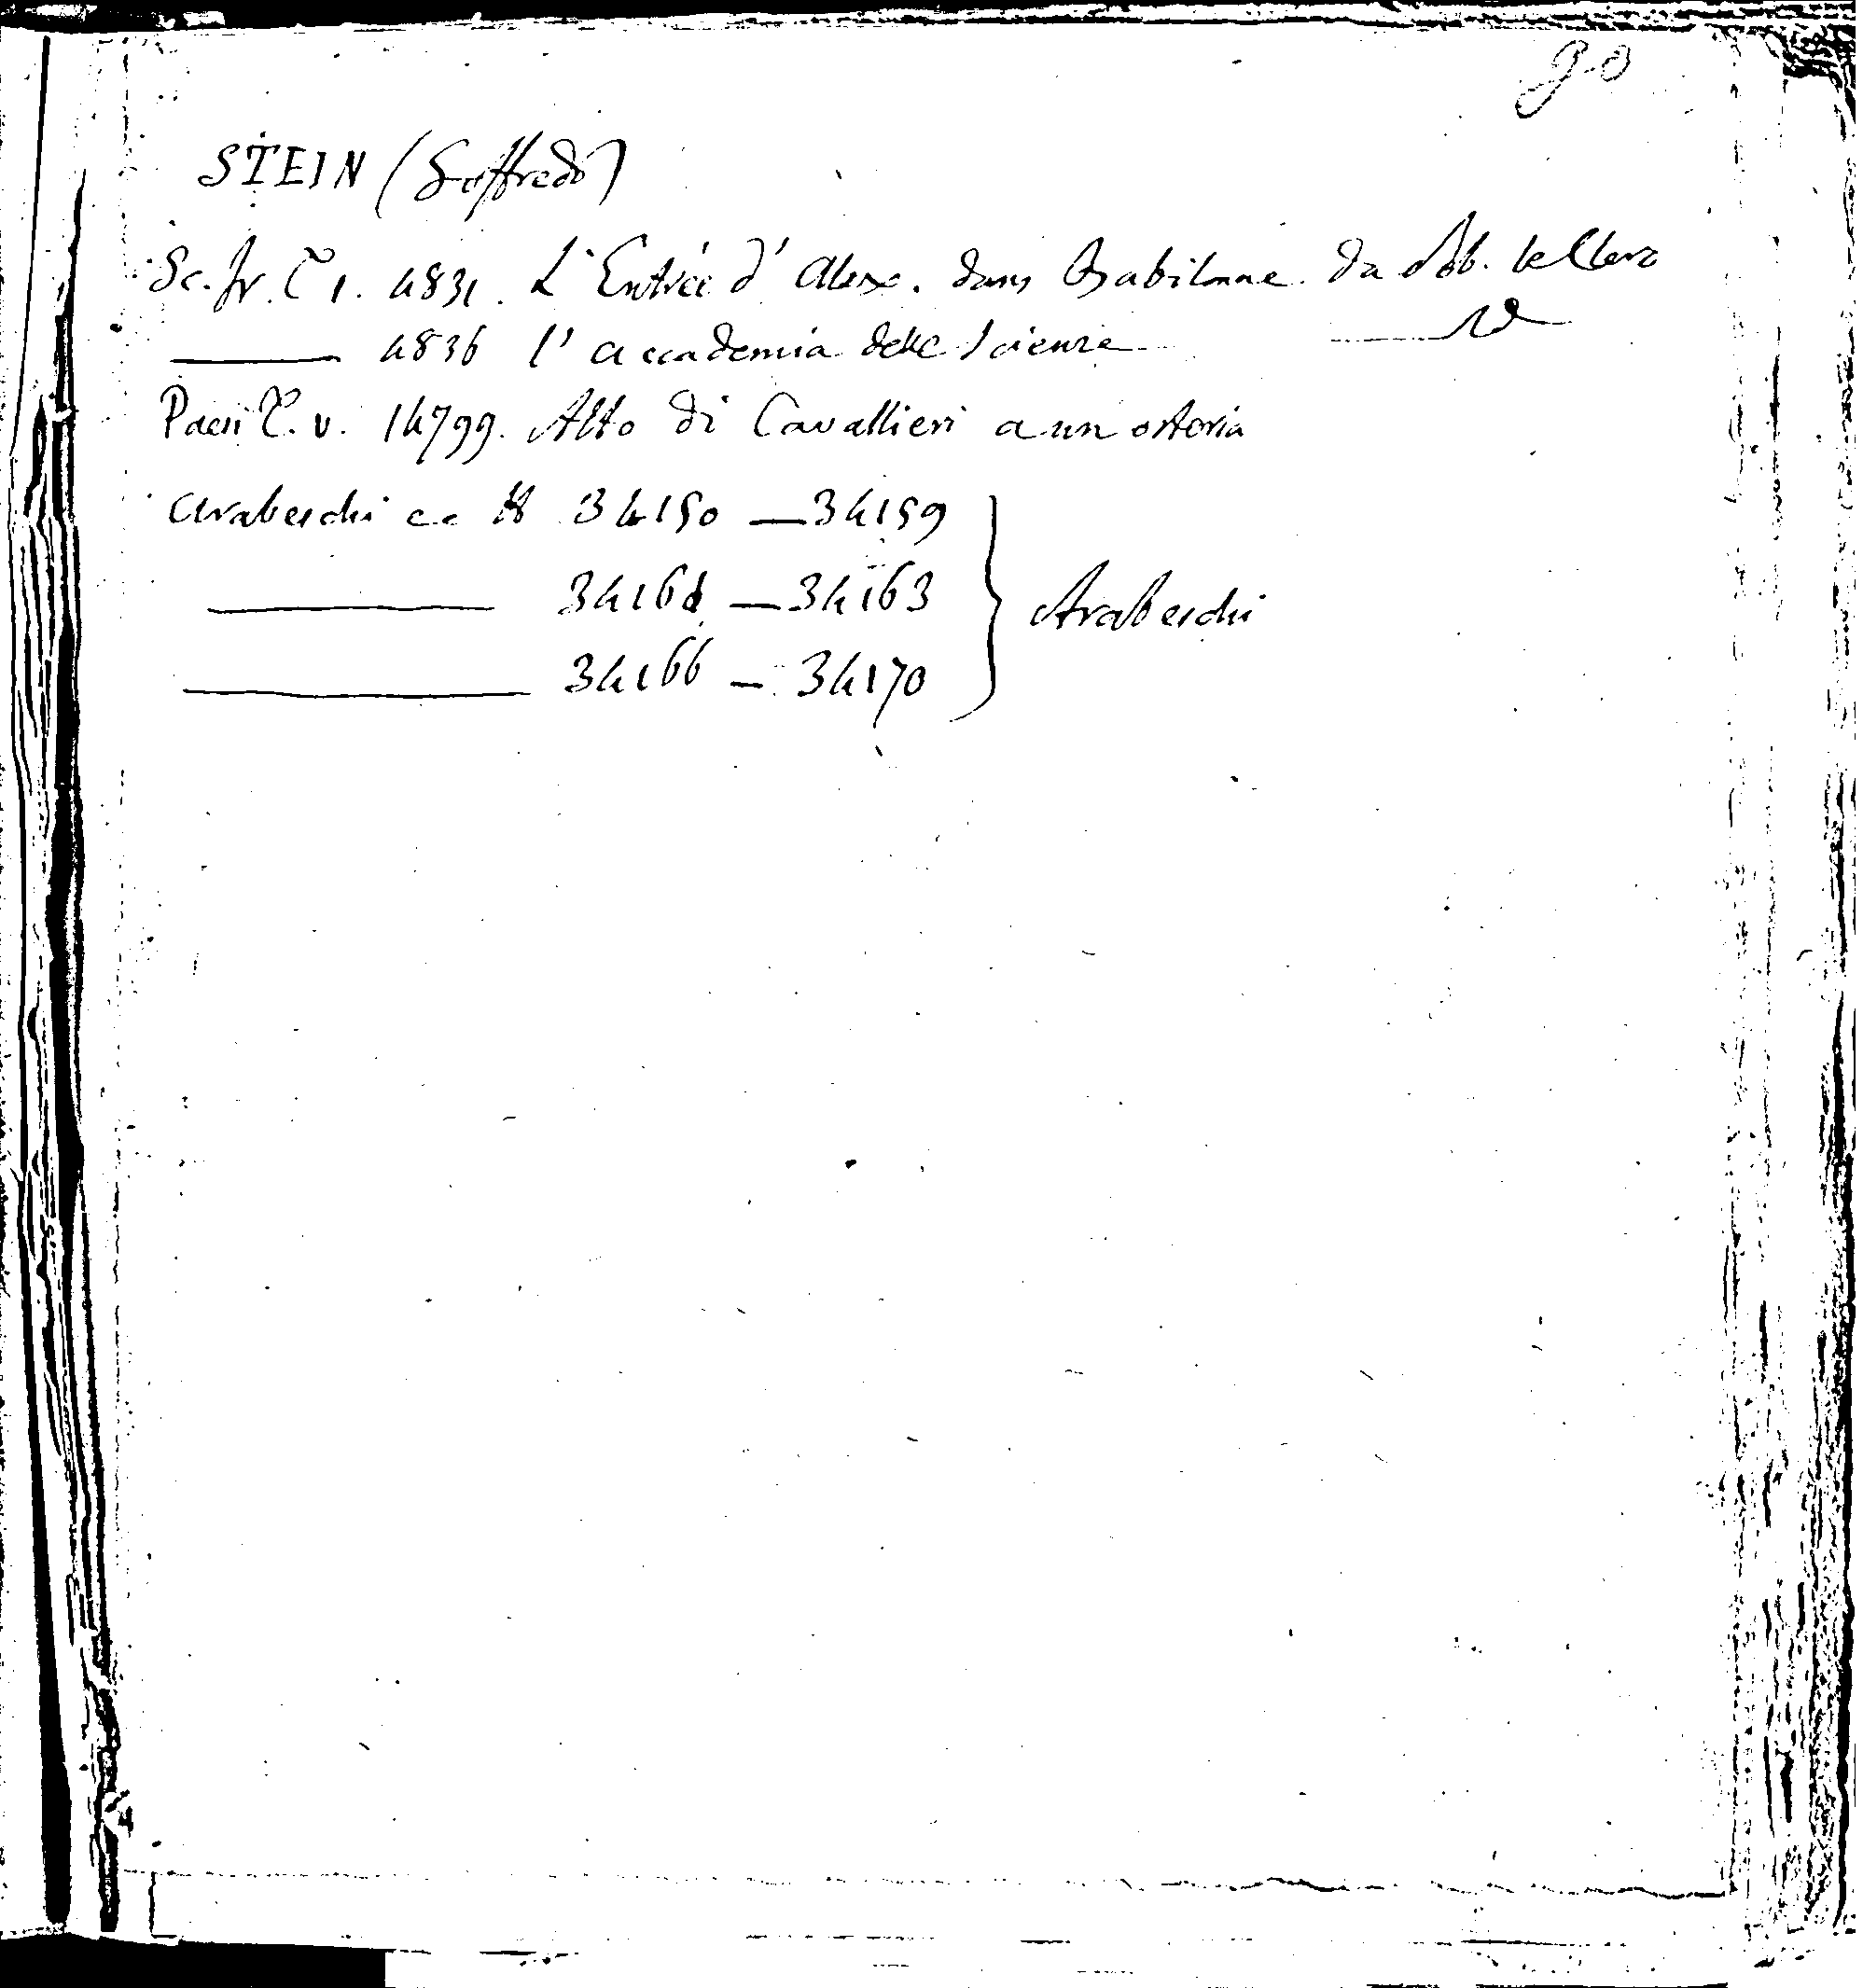 90
STEIN (Goffredo)
Sc. fr. T 1. 4831. L'Entrée d'Alex. dans Babilonne. da Seb. le Clerc
——— 4836 l'accademia delle Scienze ——— id
Paesi T. V. 14799. Alto di Cavallieri a un osteria
Arabeschi ec 34150 — 34159
——— 3416 — 34163 } Arabeschi
——— 34166 — 34170